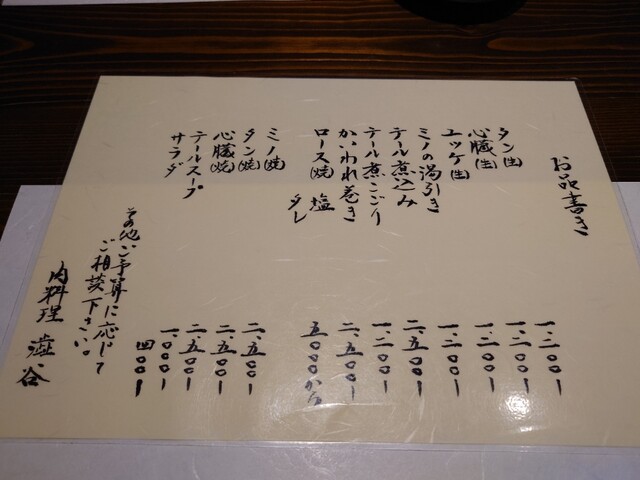 お品書き
タン(生) 一、二〇〇ー
心臓(生) 一、二〇〇ー
ユッケ(生) 一、二〇〇ー
ミノの湯引き 一、二〇〇ー
テール煮込み 二、五〇〇ー
テール煮こごり 一、二〇〇ー
かいわれ巻き 二、五〇〇ー
ロース(焼) 塩 タレ 五〇〇〇から
ミノ(焼) 二、五〇〇ー
タン(焼) 二、五〇〇ー
心臓(焼) 二、五〇〇ー
テールスープ 一、〇〇〇ー
サラダ 四〇〇ー
その他ご予算に応じて
ご相談下さい。
肉料理 澁谷